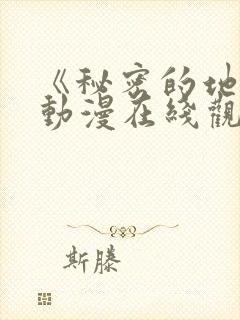 《秘密的地
動漫在綫觀
斯滕